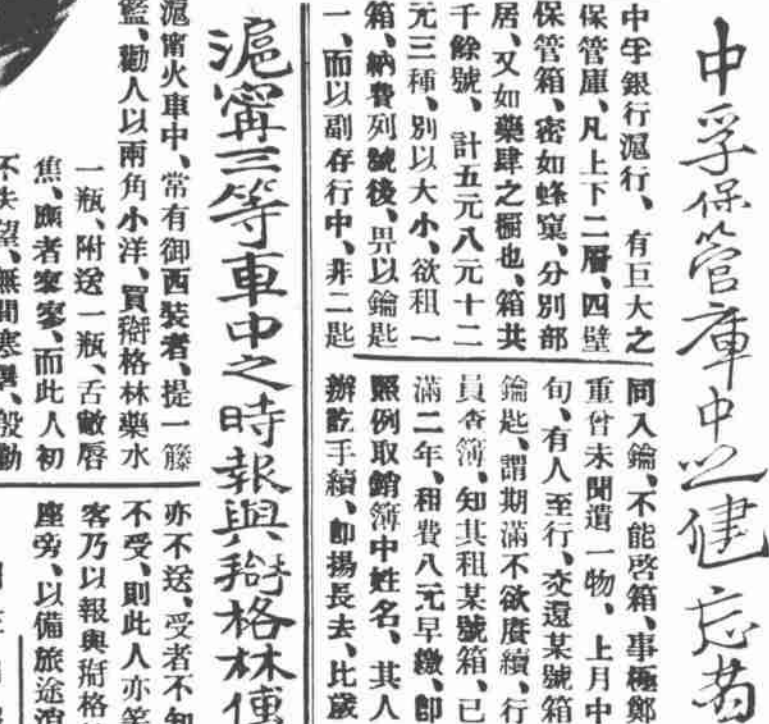 中孚保管庫中之健忘者
中孚銀行滬行、有巨大之
保管庫、凡上下二層、四壁
保管箱、密如蜂窠、分別部
居、又如藥肆之櫥也、箱共
千餘號、計五元八元十二
元三種、別以大小、欲租一
箱、納費列號後、畀以鑰匙
一、而以副存行中、非二匙
同入鑰、不能啓箱、事極鄭
重曾未聞遺一物、上月中
旬、有人至行、交還某號箱
鑰匙、謂期滿不欲賡續、行
員查簿、知其租某號箱、已
滿二年、租費八元早繳、卽
照例取銷簿中姓名、其人
辦訖手續、卽揚長去、比歲
滬甯三等車中之時報與掰格林傳
滬甯火車中、常有御西裝者、提一籐
籃、勸人以兩角小洋、買掰格林藥水
一瓶、附送一瓶、舌敝唇
焦、應者寥寥、而此人初
不失望、無間寒暑、殷勤
亦不送、受者不知
不受、則此人亦笑
客乃以報與掰格
座旁、以備旅途消